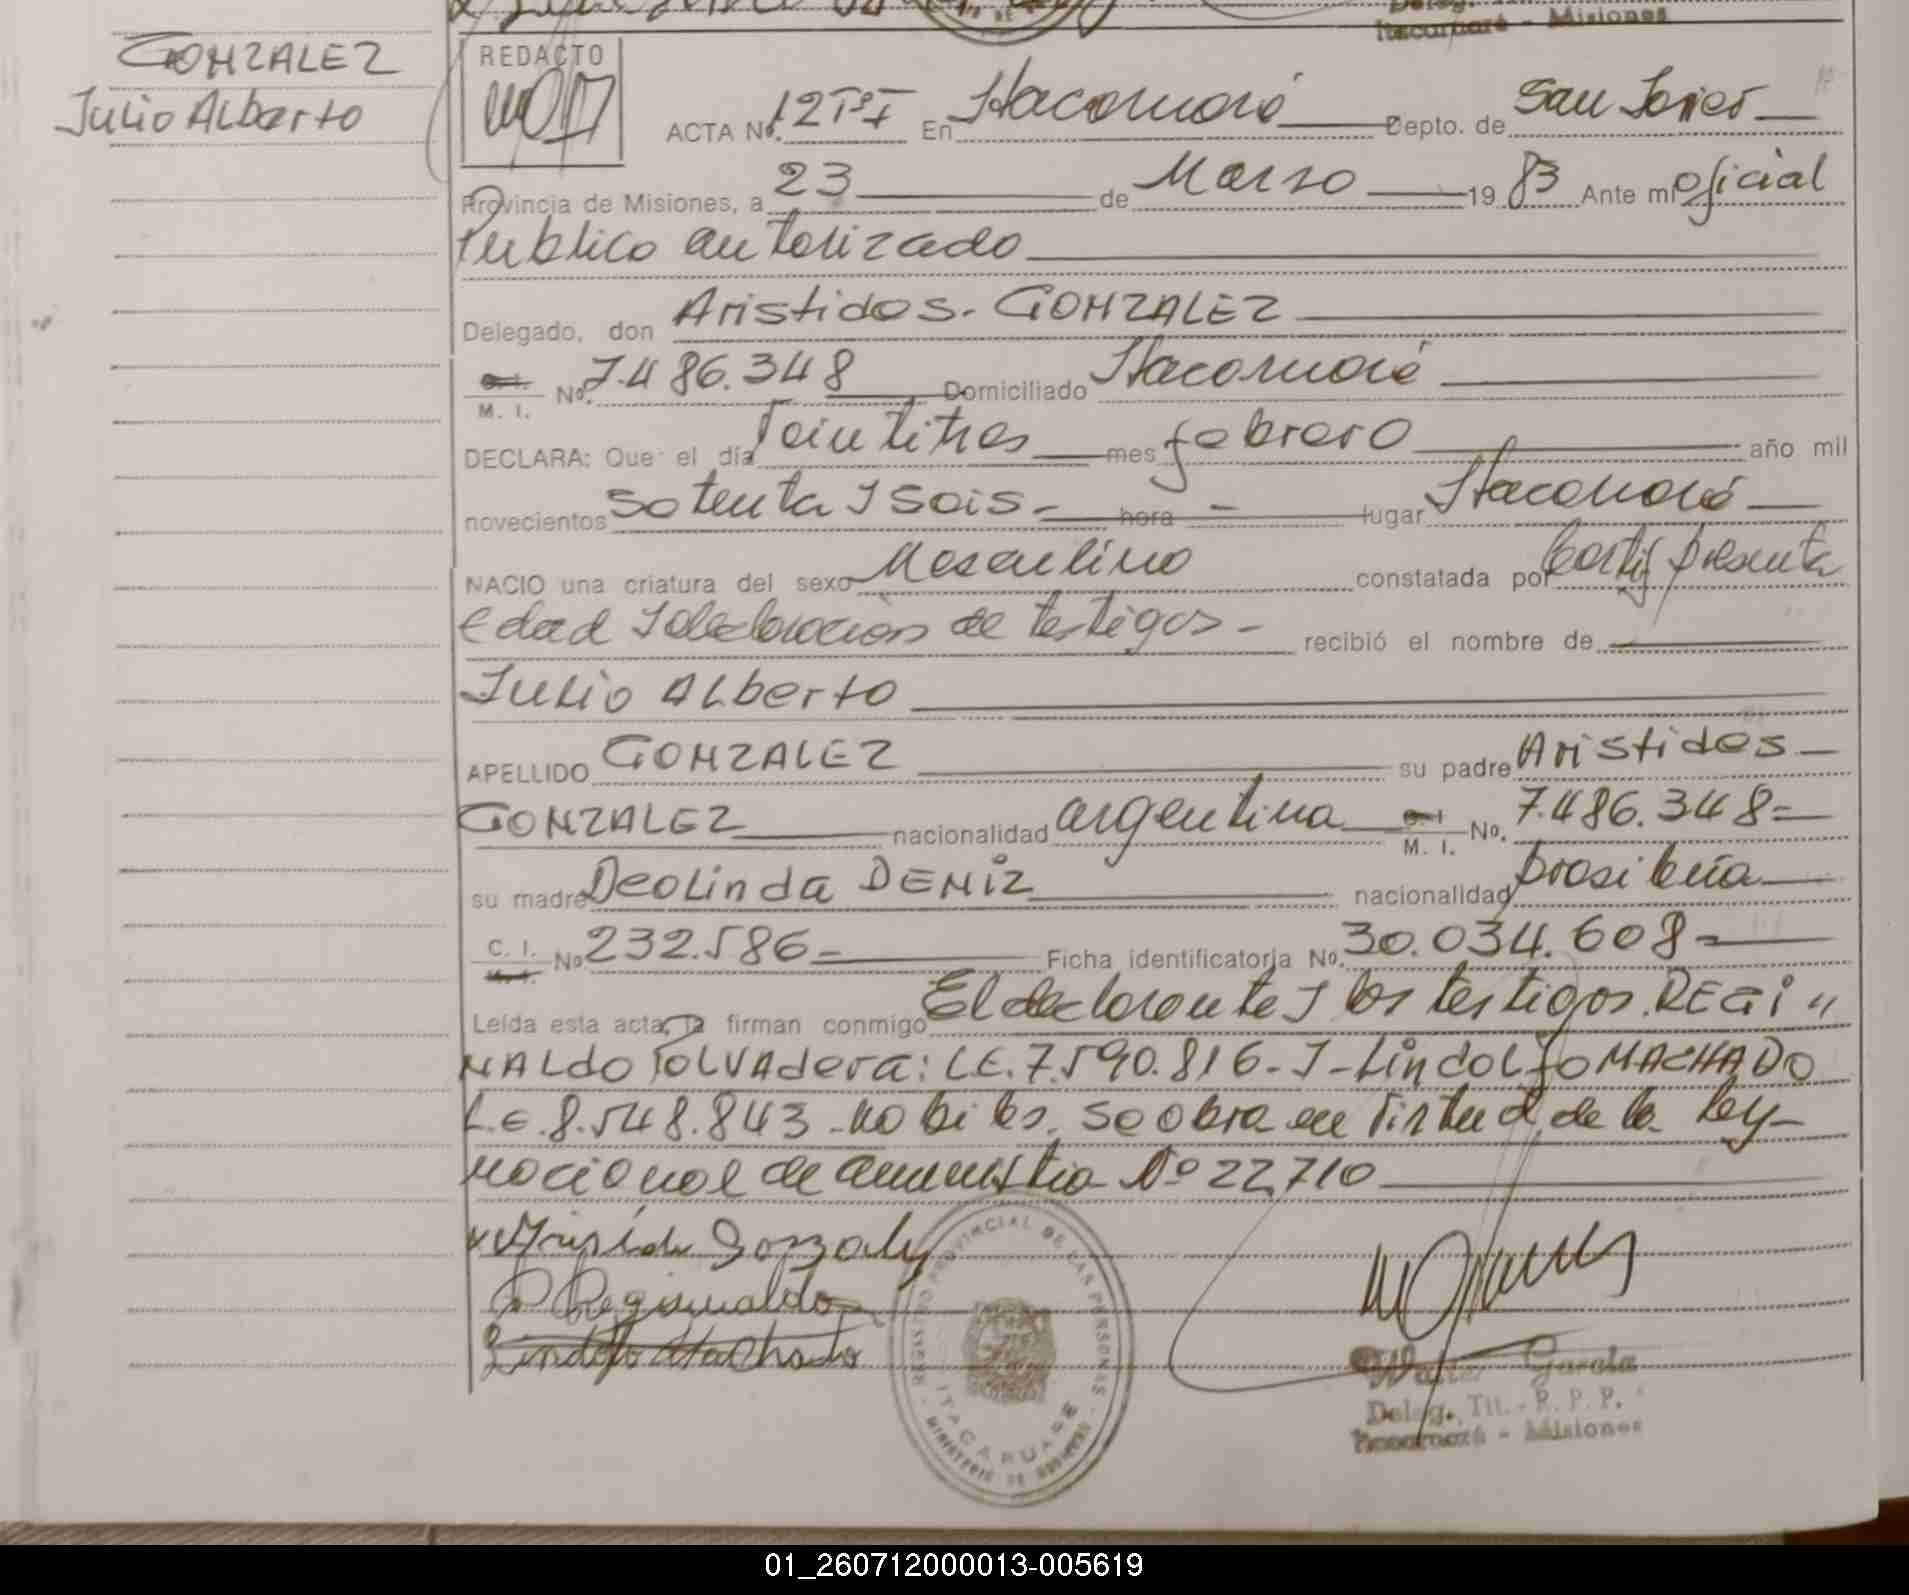 Itacaruaré - Misiones
GONZALEZ
Julio Alberto
REDACTO
ACTA No. 12 Tº I En Itacaruaré Depto. de San Javier
Provincia de Misiones, a 23 de Marzo 19 83 Ante mi oficial
Publico autorizado
Delegado, don Aristides. GONZALEZ
C. I. M. I. No. 7.486.348 Domiciliado Itacaruaré
DECLARA: Que el día Veintitres mes febrero año mil
novecientos setenta y seis - hora - lugar Itacaruaré
NACIO una criatura del sexo Masculino constatada por Certif presunta
edad y declaración de testigos - recibió el nombre de
Julio Alberto
APELLIDO GONZALEZ su padre Aristides
GONZALEZ nacionalidad argentina C. I. M. I. No. 7.486.348=
su madre Deolinda DENIZ nacionalidad brasileña
C. I. M. I. No 232.586- Ficha identificatoria No. 30.034.608-
Leída esta acta, la firman conmigo El declarante y los testigos. REGI"
NALDO POLVAdera: LE. 7.590.816- y- Lindolfo MACHADO
L.E. 8.548.843 - habiles. Se obra en virtud de la ley-
nacional de amnistia Nº 22,710
Reginaldo
Lindolfo Machado
REGISTRO PROVINCIAL DE LAS PERSONAS - MINISTERIO DE GOBIERNO -
ITACARUARE
Walter García
Deleg. Tit. - R. P. P.
Itacaruaré - Misiones
01_260712000013-005619